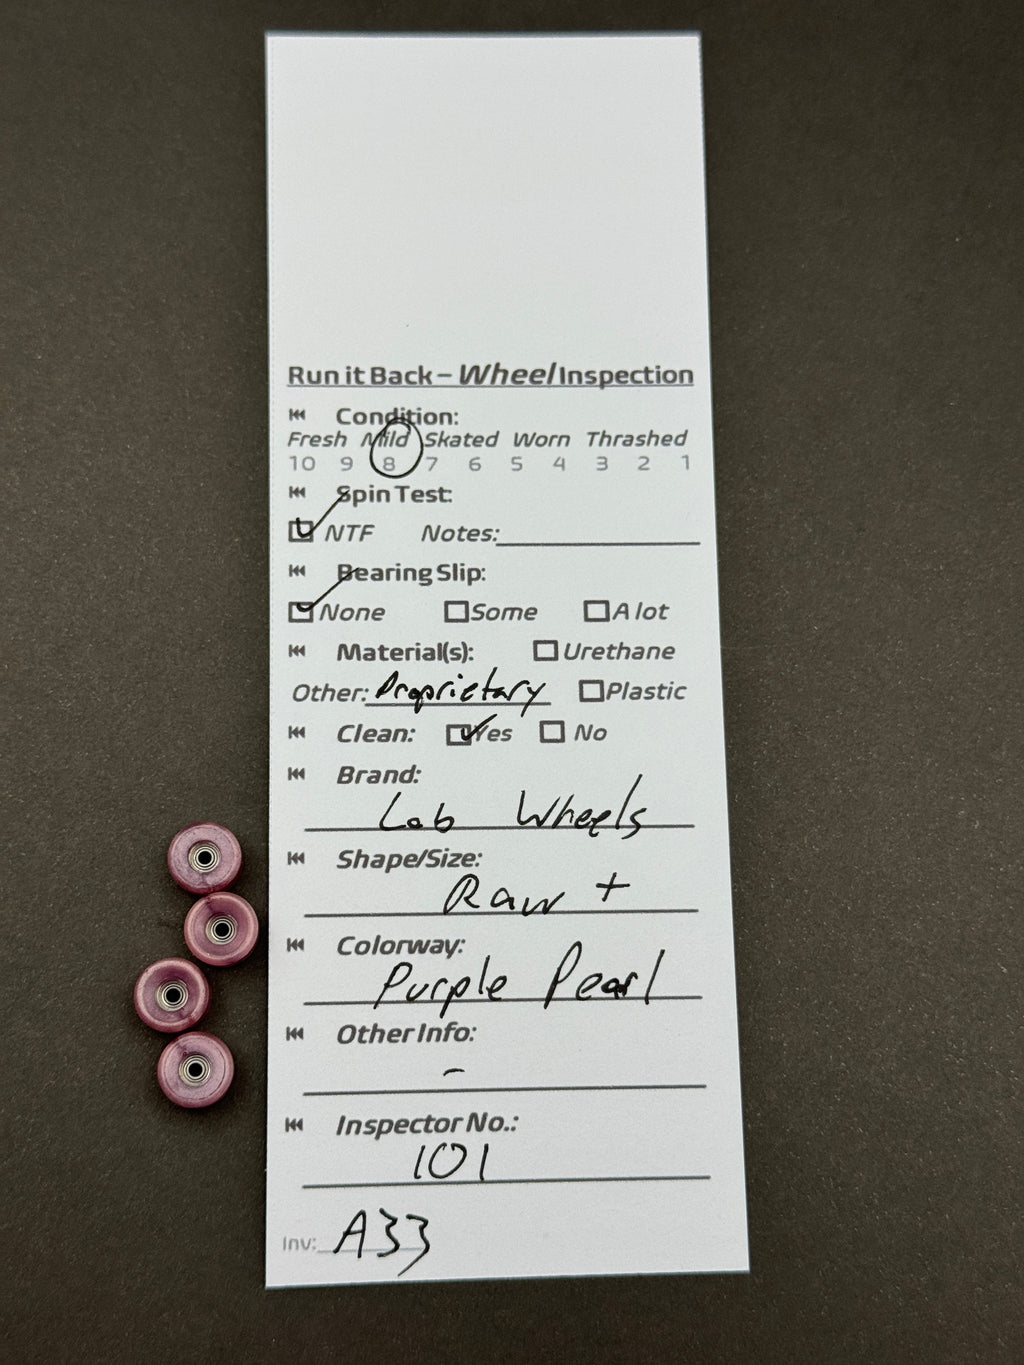 Run it Back – Wheel Inspection
Condition:
Fresh Mild Skated Worn Thrashed
10 9 8 7 6 5 4 3 2 1
Spin Test:
NTF Notes:
Bearing Slip:
None Some A lot
Material(s): Urethane
Other: Proprietary Plastic
Clean: Yes No
Brand:
Lab Wheels
Shape/Size:
Raw +
Colorway:
Purple Pearl
Other Info:
-
Inspector No.:
101
Inv: A33